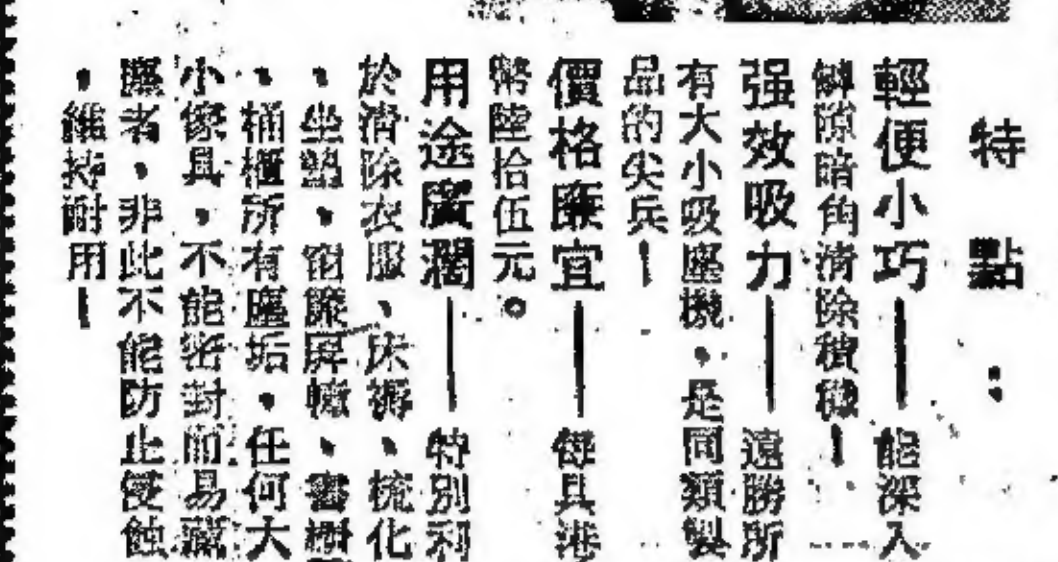 特點：
輕便小巧——能深入
罅隙暗角清除積穢！
强效吸力——遠勝所
有大小吸塵機，是同類製
品的尖兵！
價格廉宜——每具港
幣陸拾伍元。
用途廣濶——特別利
於清除衣服、床褥、梳化
、坐墊、窗簾屏幃、書櫥
、桶櫃所有塵垢，任何大
小傢具，不能密封而易藏
塵者，非此不能防止侵蝕
，維持耐用！